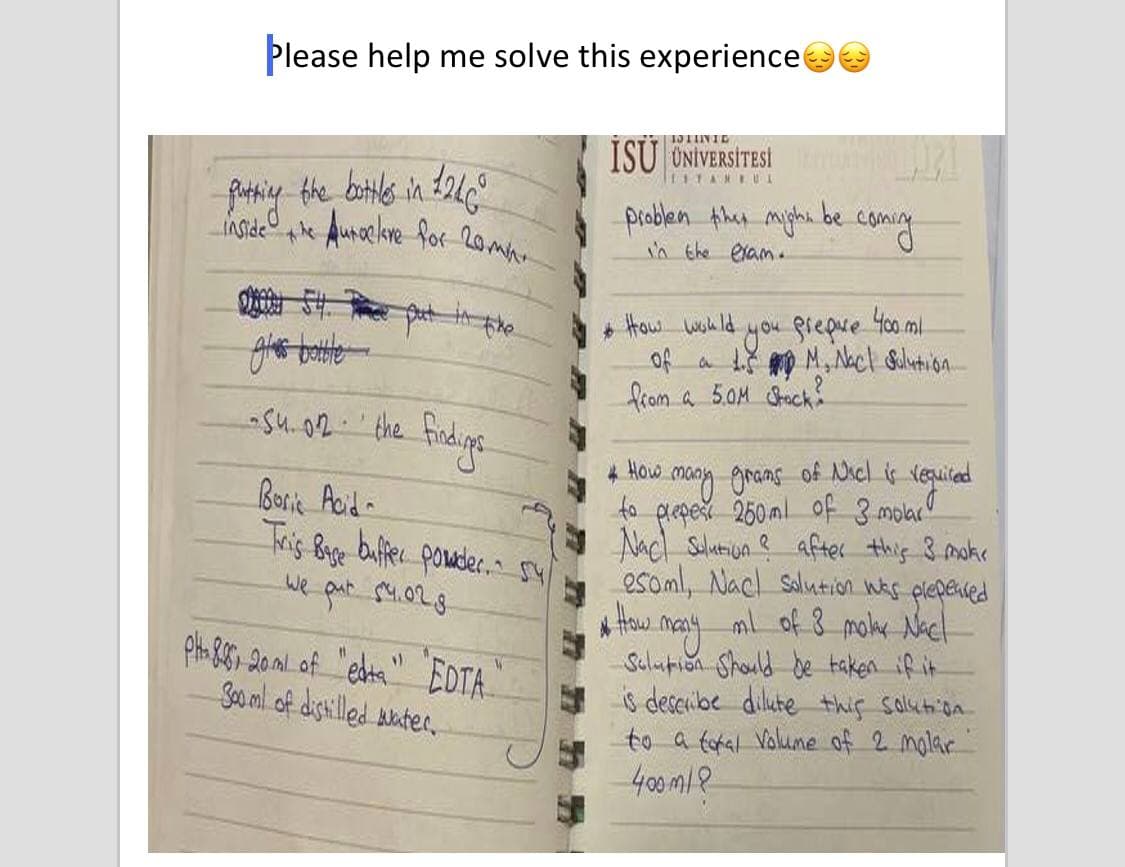 Please help me solve this experience😔😔
putting the bottles in 121C°
inside the Autoclave for 20min.
54. put in the
glas bottle
-54.02. the findigs
Boric Acid-
Tris Base buffer powder. 54
we put 54.02g
PH=8.8, 20ml of "edta" "EDTA"
800ml of distilled water.
İSTİNYE
İSÜ ÜNİVERSİTESİ
İSTANBUL
problem that might be coming
in the exam.
* How would you prepare 400ml
of a 1.5 M, Nacl Solution
from a 5.0M Stock?
* How many grams of Nacl is required
to prepere 250ml of 3 molar
Nacl Solution? after this 3 molar
250ml, Nacl Solution was prepensed
* How many ml of 3 molar Nacl
Solution should be taken if it
is describe dilute this solution
to a total volume of 2 molar
400ml?